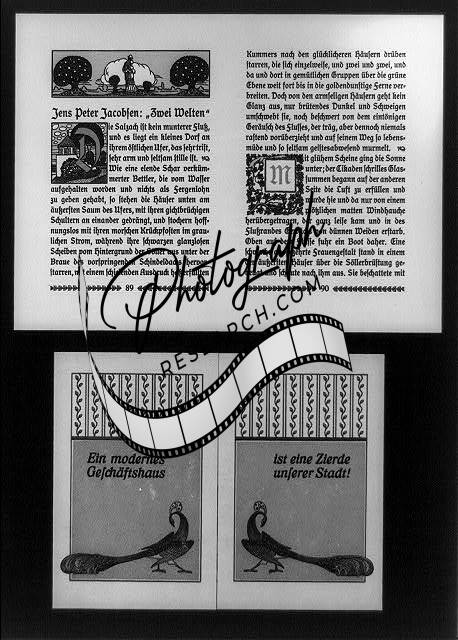 Jens Peter Jacobsen: „Zwei Welten“
Die Salzach ist kein munterer Fluß,
und es liegt ein kleines Dorf an
ihrem östlichen Ufer, das sehr trist,
sehr arm und seltsam stille ist.
Wie eine elende Schar verküm-
merter Bettler, die vom Wasser
aufgehalten worden und nichts als Fergenlohn
zu geben gehabt, so stehen die Häuser unten am
äußersten Saum des Ufers, mit ihren gichtbrüchigen
Schultern an einander gedrängt, und stochern hoff-
nungslos mit ihren morschen Krückpfosten im grau-
lichen Strom, während ihre schwarzen glanzlosen
Scheiben vom Hintergrund des Söller aus unter der
Braue des vorspringenden Schindeldachs hervor-
starren, mit einem schielenden Ausdruck gehässigen
89
Kummers nach den glücklicheren Häusern drüben
starren, die sich einzelweise, und zwei und zwei, und
da und dort in gemütlichen Gruppen über die grüne
Ebene weit fort bis in die goldendunstige Ferne ver-
breiten. Doch von den armseligen Häusern geht kein
Glanz aus, nur brütendes Dunkel und Schweigen
umschwebt sie, noch beschwert von dem eintönigen
Geräusch des Flusses, der träg, aber dennoch niemals
rastend vorüberzieht und auf seinem Weg so lebens-
müde und so seltsam geistesabwesend murmelt.
Mit glühem Scheine ging die Sonne
unter; der Cikaden schrilles Glas-
summen begann auf der anderen
Seite die Luft zu erfüllen und
hie und da nur von einem
plötzlichen matten Windhauche
herübergetragen, der ganz leise kam und in des
Flußrandes dünnen Weiden erstarb.
Oben fuhr ein Boot daher. Eine
schwache, Frauengestalt stand in einem
der äußersten Häuser über die Söllerbrüstung ge-
lehnt und schaute nach ihm aus. Sie beschattete mit
90
Photograph
RESEARCH.COM
Ein modernes
Geschäftshaus
ist eine Zierde
unserer Stadt!